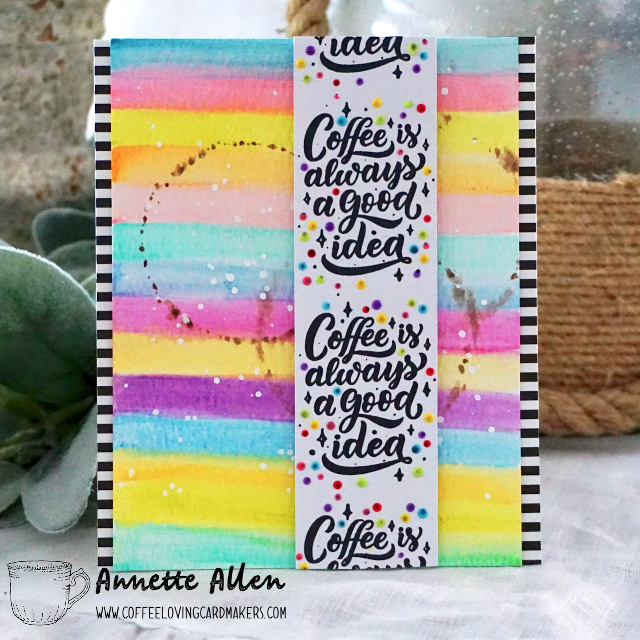 idea
Coffee is
always
a good
idea
Coffee is
always
a good
idea
Coffee is
Annette Allen
WWW.COFFEELOVINGCARDMAKERS.COM